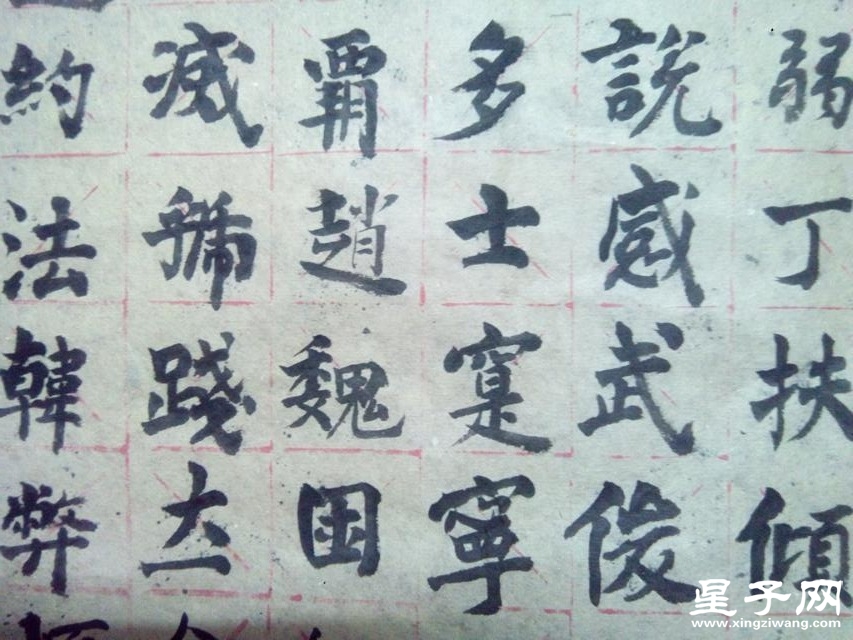 弱丁扶傾
說感武俊
多士寔寧
覇趙魏困
滅虢踐土
約法韓弊
星子网
www.xingziwang.com